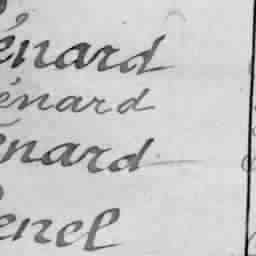 énard
énard
énard
enel